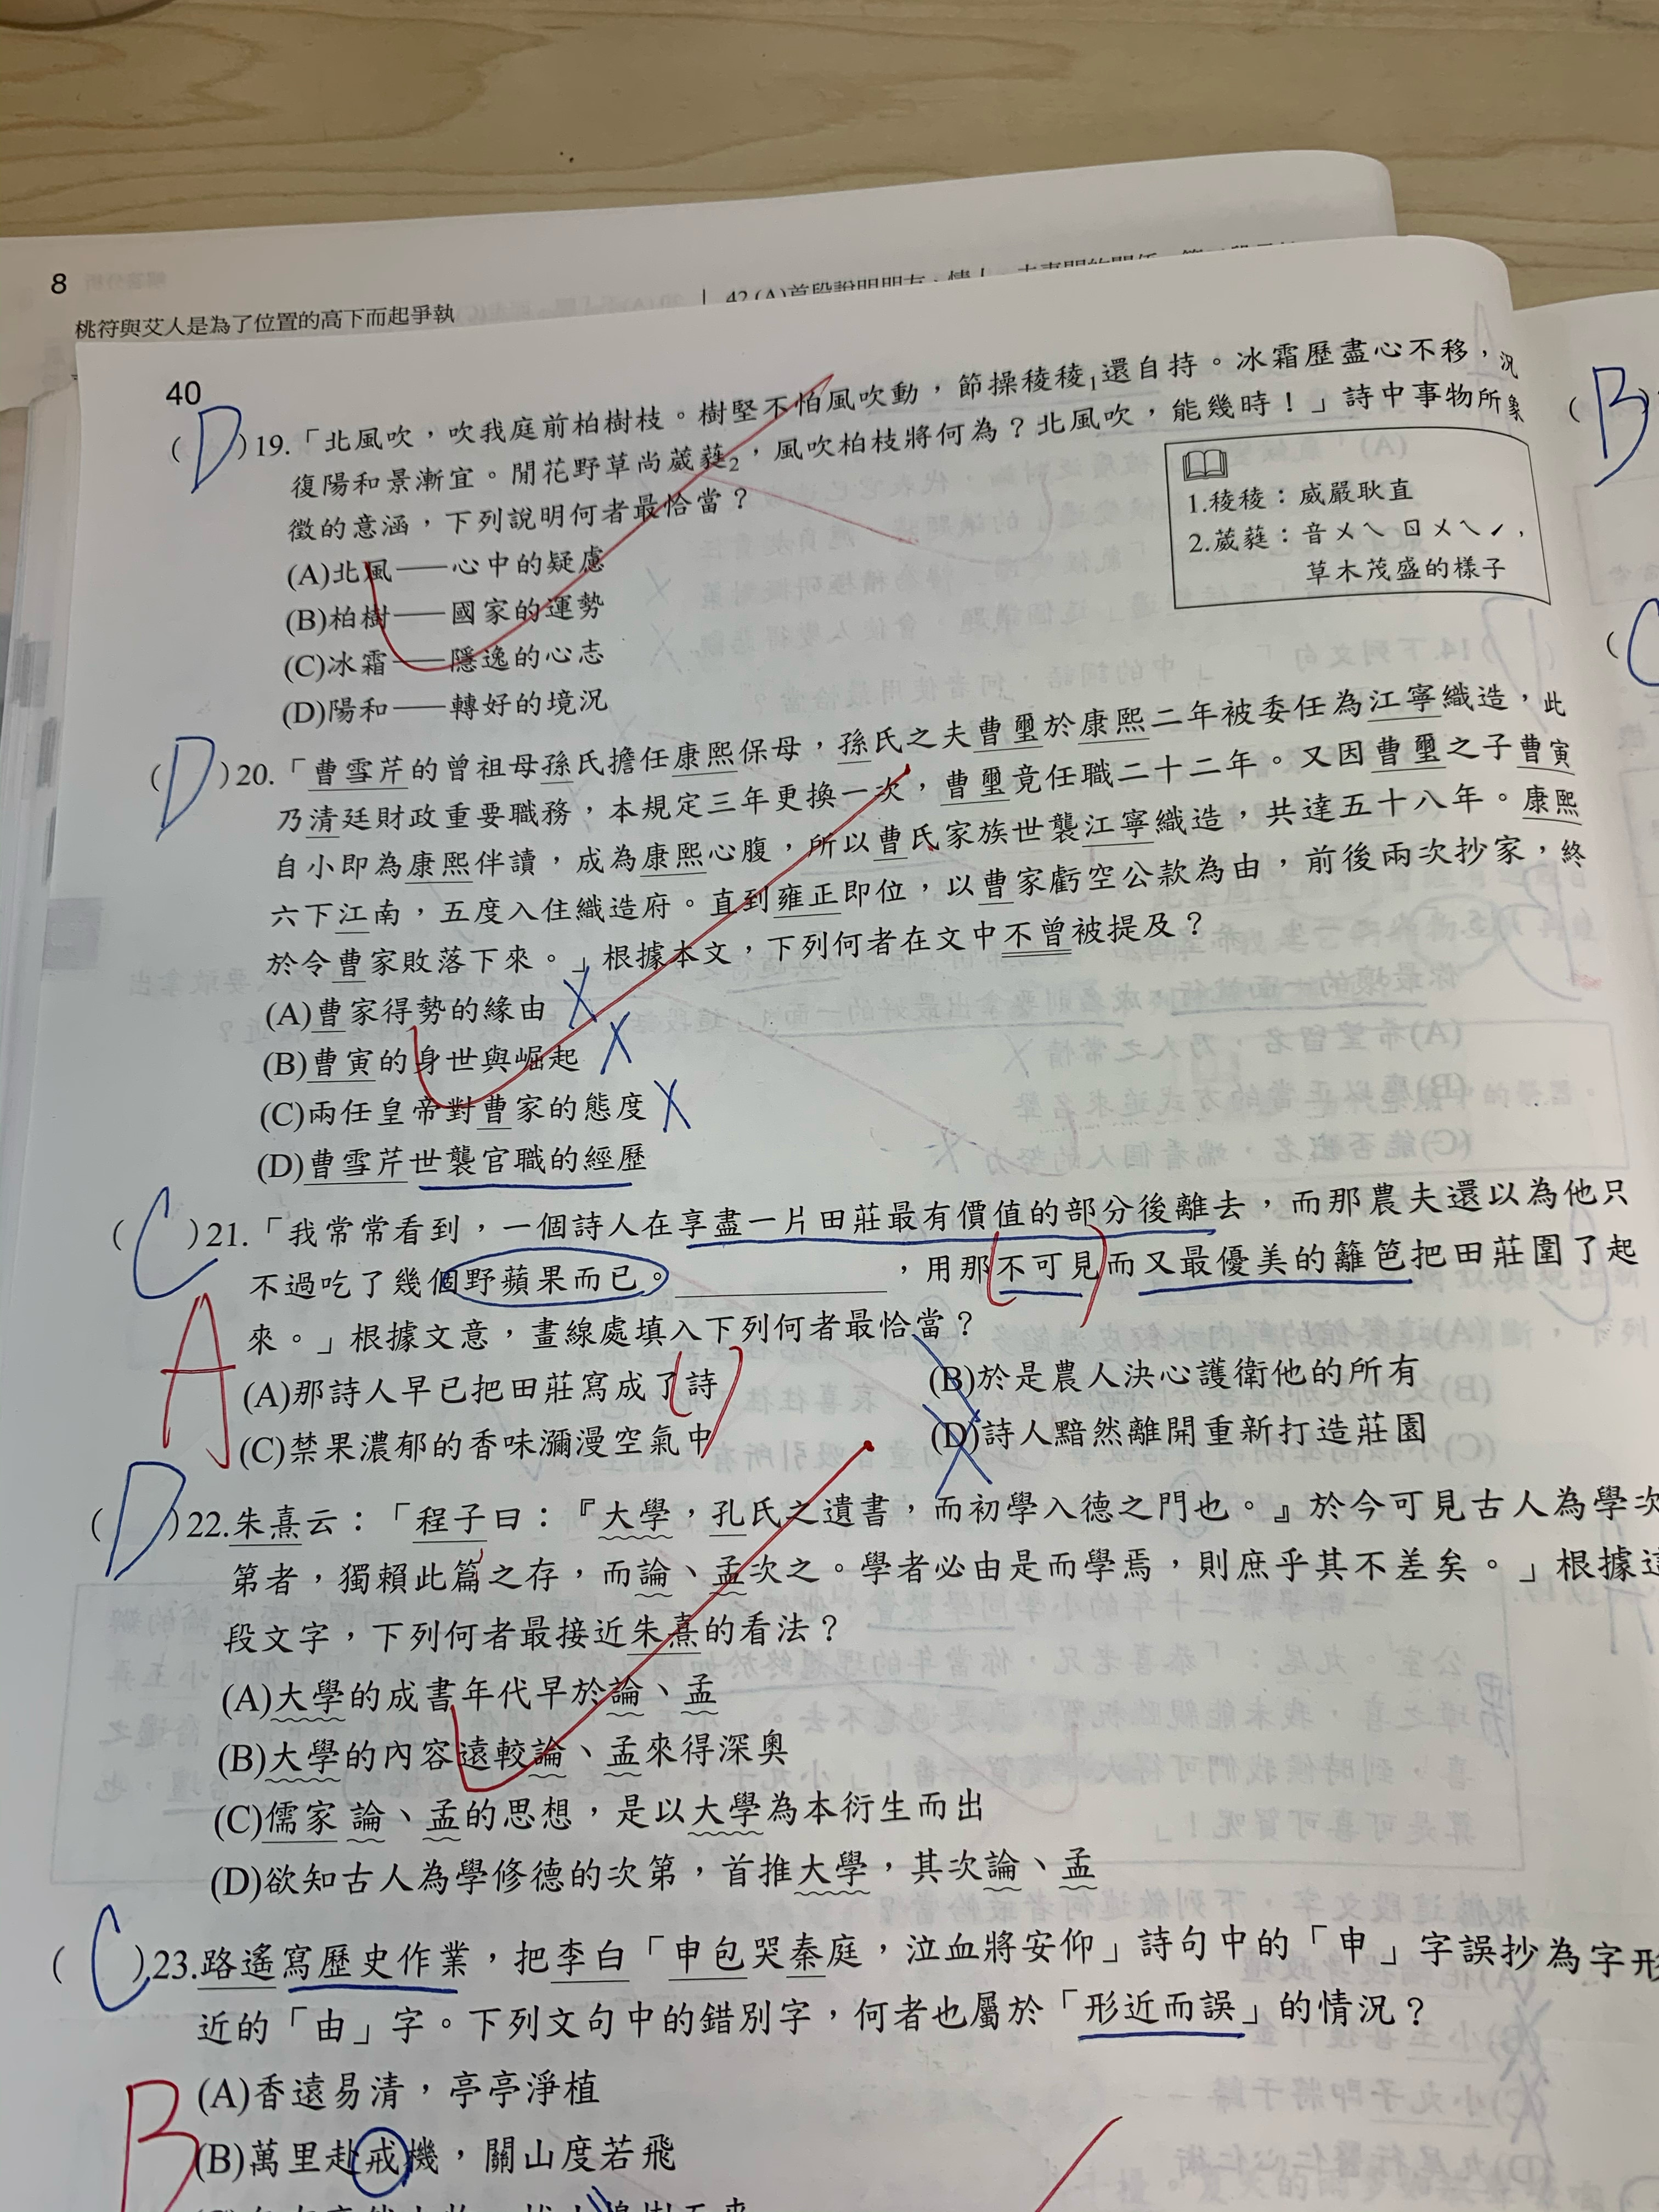 8
桃符與艾人是為了位置的高下而起爭執
40
(D)19.「北風吹,吹我庭前柏樹枝。樹堅不怕風吹動,節操稜稜1還自持。冰霜歷盡心不移,況
復陽和景漸宜。閒花野草尚葳蕤2,風吹柏枝將何為?北風吹,能幾時!」詩中事物所象
徵的意涵,下列說明何者最恰當?
(A)北風——心中的疑慮
(B)柏樹——國家的運勢
(C)冰霜——隱逸的心志
(D)陽和——轉好的境況
1.稜稜:威嚴耿直
2.葳蕤:音ㄨㄟ ㄖㄨㄟˊ,
草木茂盛的樣子
(D)20.「曹雪芹的曾祖母孫氏擔任康熙保母,孫氏之夫曹璽於康熙二年被委任為江寧織造,此
乃清廷財政重要職務,本規定三年更換一次,曹璽竟任職二十二年。又因曹璽之子曹寅
自小即為康熙伴讀,成為康熙心腹,所以曹氏家族世襲江寧織造,共達五十八年。康熙
六下江南,五度入住織造府。直到雍正即位,以曹家虧空公款為由,前後兩次抄家,終
於令曹家敗落下來。」根據本文,下列何者在文中不曾被提及?
(A)曹家得勢的緣由
(B)曹寅的身世與崛起
(C)兩任皇帝對曹家的態度
(D)曹雪芹世襲官職的經歷
(C)21.「我常常看到,一個詩人在享盡一片田莊最有價值的部分後離去,而那農夫還以為他只
不過吃了幾個野蘋果而已。__________,用那不可見而又最優美的籬笆把田莊圍了起
來。」根據文意,畫線處填入下列何者最恰當?
A
(A)那詩人早已把田莊寫成了詩
(B)於是農人決心護衛他的所有
(C)禁果濃郁的香味瀰漫空氣中
(D)詩人黯然離開重新打造莊園
(D)22.朱熹云:「程子曰:『大學,孔氏之遺書,而初學入德之門也。』於今可見古人為學次
第者,獨賴此篇之存,而論、孟次之。學者必由是而學焉,則庶乎其不差矣。」根據這
段文字,下列何者最接近朱熹的看法?
(A)大學的成書年代早於論、孟
(B)大學的內容遠較論、孟來得深奧
(C)儒家論、孟的思想,是以大學為本衍生而出
(D)欲知古人為學修德的次第,首推大學,其次論、孟
(C)23.路遙寫歷史作業,把李白「申包哭秦庭,泣血將安仰」詩句中的「申」字誤抄為字形
近的「由」字。下列文句中的錯別字,何者也屬於「形近而誤」的情況?
(A)香遠易清,亭亭淨植
B
(B)萬里赴戒機,關山度若飛